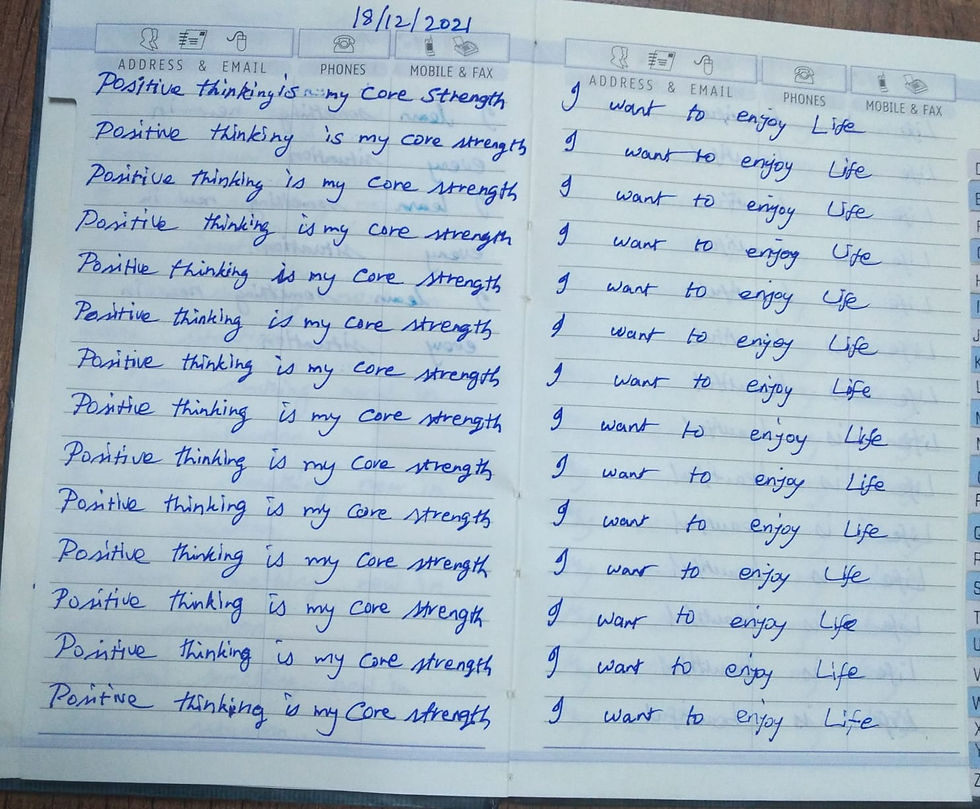 18/12/2021
ADDRESS & EMAIL PHONES MOBILE & FAX
Positive thinking is my core Strength
Positive thinking is my core strength
Positive thinking is my core strength
Positive thinking is my core strength
Positive thinking is my core strength
Positive thinking is my core strength
Positive thinking is my core strength
Positive thinking is my core strength
Positive thinking is my core strength
Positive thinking is my core strength
Positive thinking is my core strength
Positive thinking is my core strength
Positive thinking is my core strength
Positive thinking is my core strength
ADDRESS & EMAIL PHONES MOBILE & FAX
I want to enjoy Life
I want to enjoy Life
I want to enjoy Life
I want to enjoy Life
I want to enjoy Life
I want to enjoy Life
I want to enjoy Life
I want to enjoy Life
I want to enjoy Life
I want to enjoy Life
I want to enjoy Life
I want to enjoy Life
I want to enjoy Life
I want to enjoy Life
J
K
S
T
U
V
W
X
Y
Z